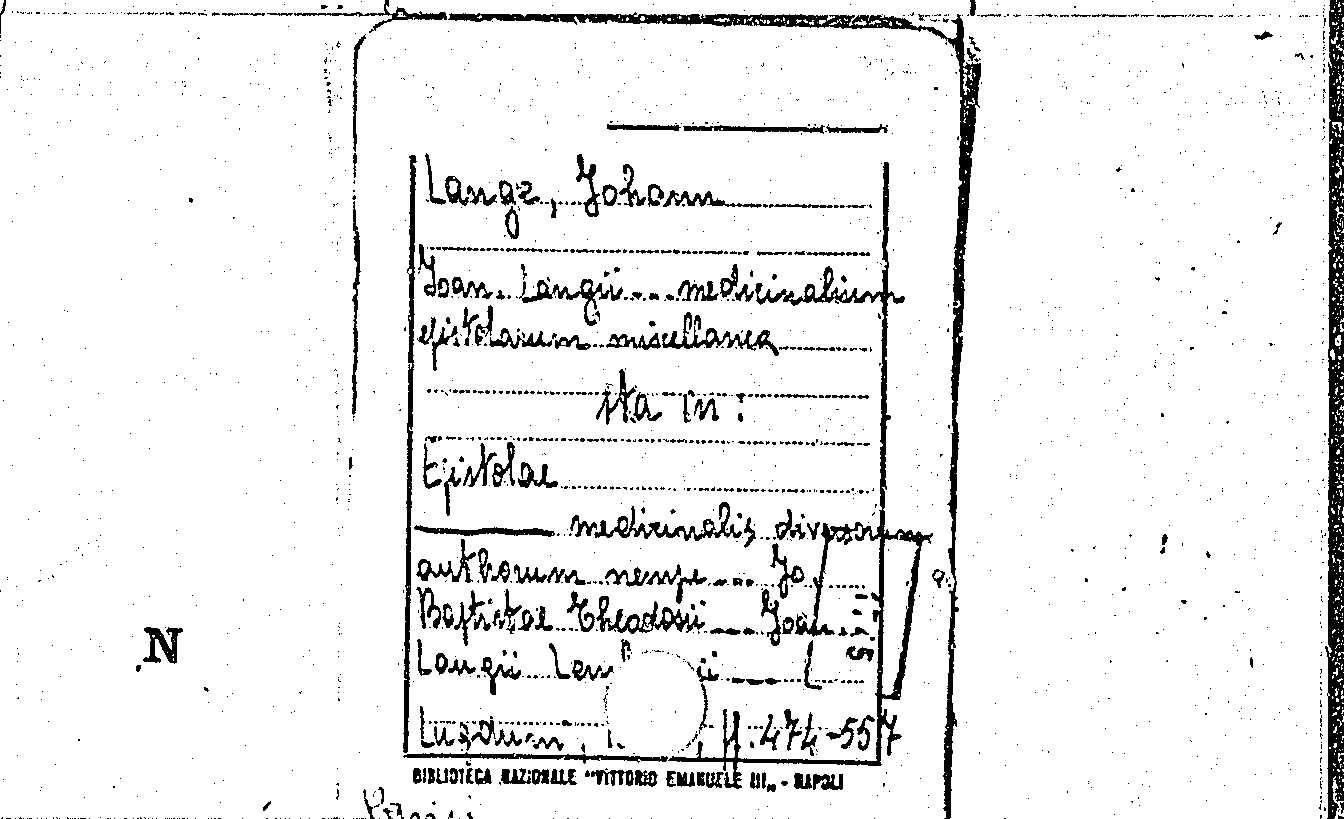 Lange, Johann
Joan. Langii ... medicinalium
epistolarum miscellanea
sta in:
Epistolae
medicinalis diversorum
authorum nempe ... Jo.
Baptistae Theodosii ... Joan.
Langii ...
Lugduni, ff. 474-557
BIBLIOTECA NAZIONALE "VITTORIO EMANUELE III„ - NAPOLI
N